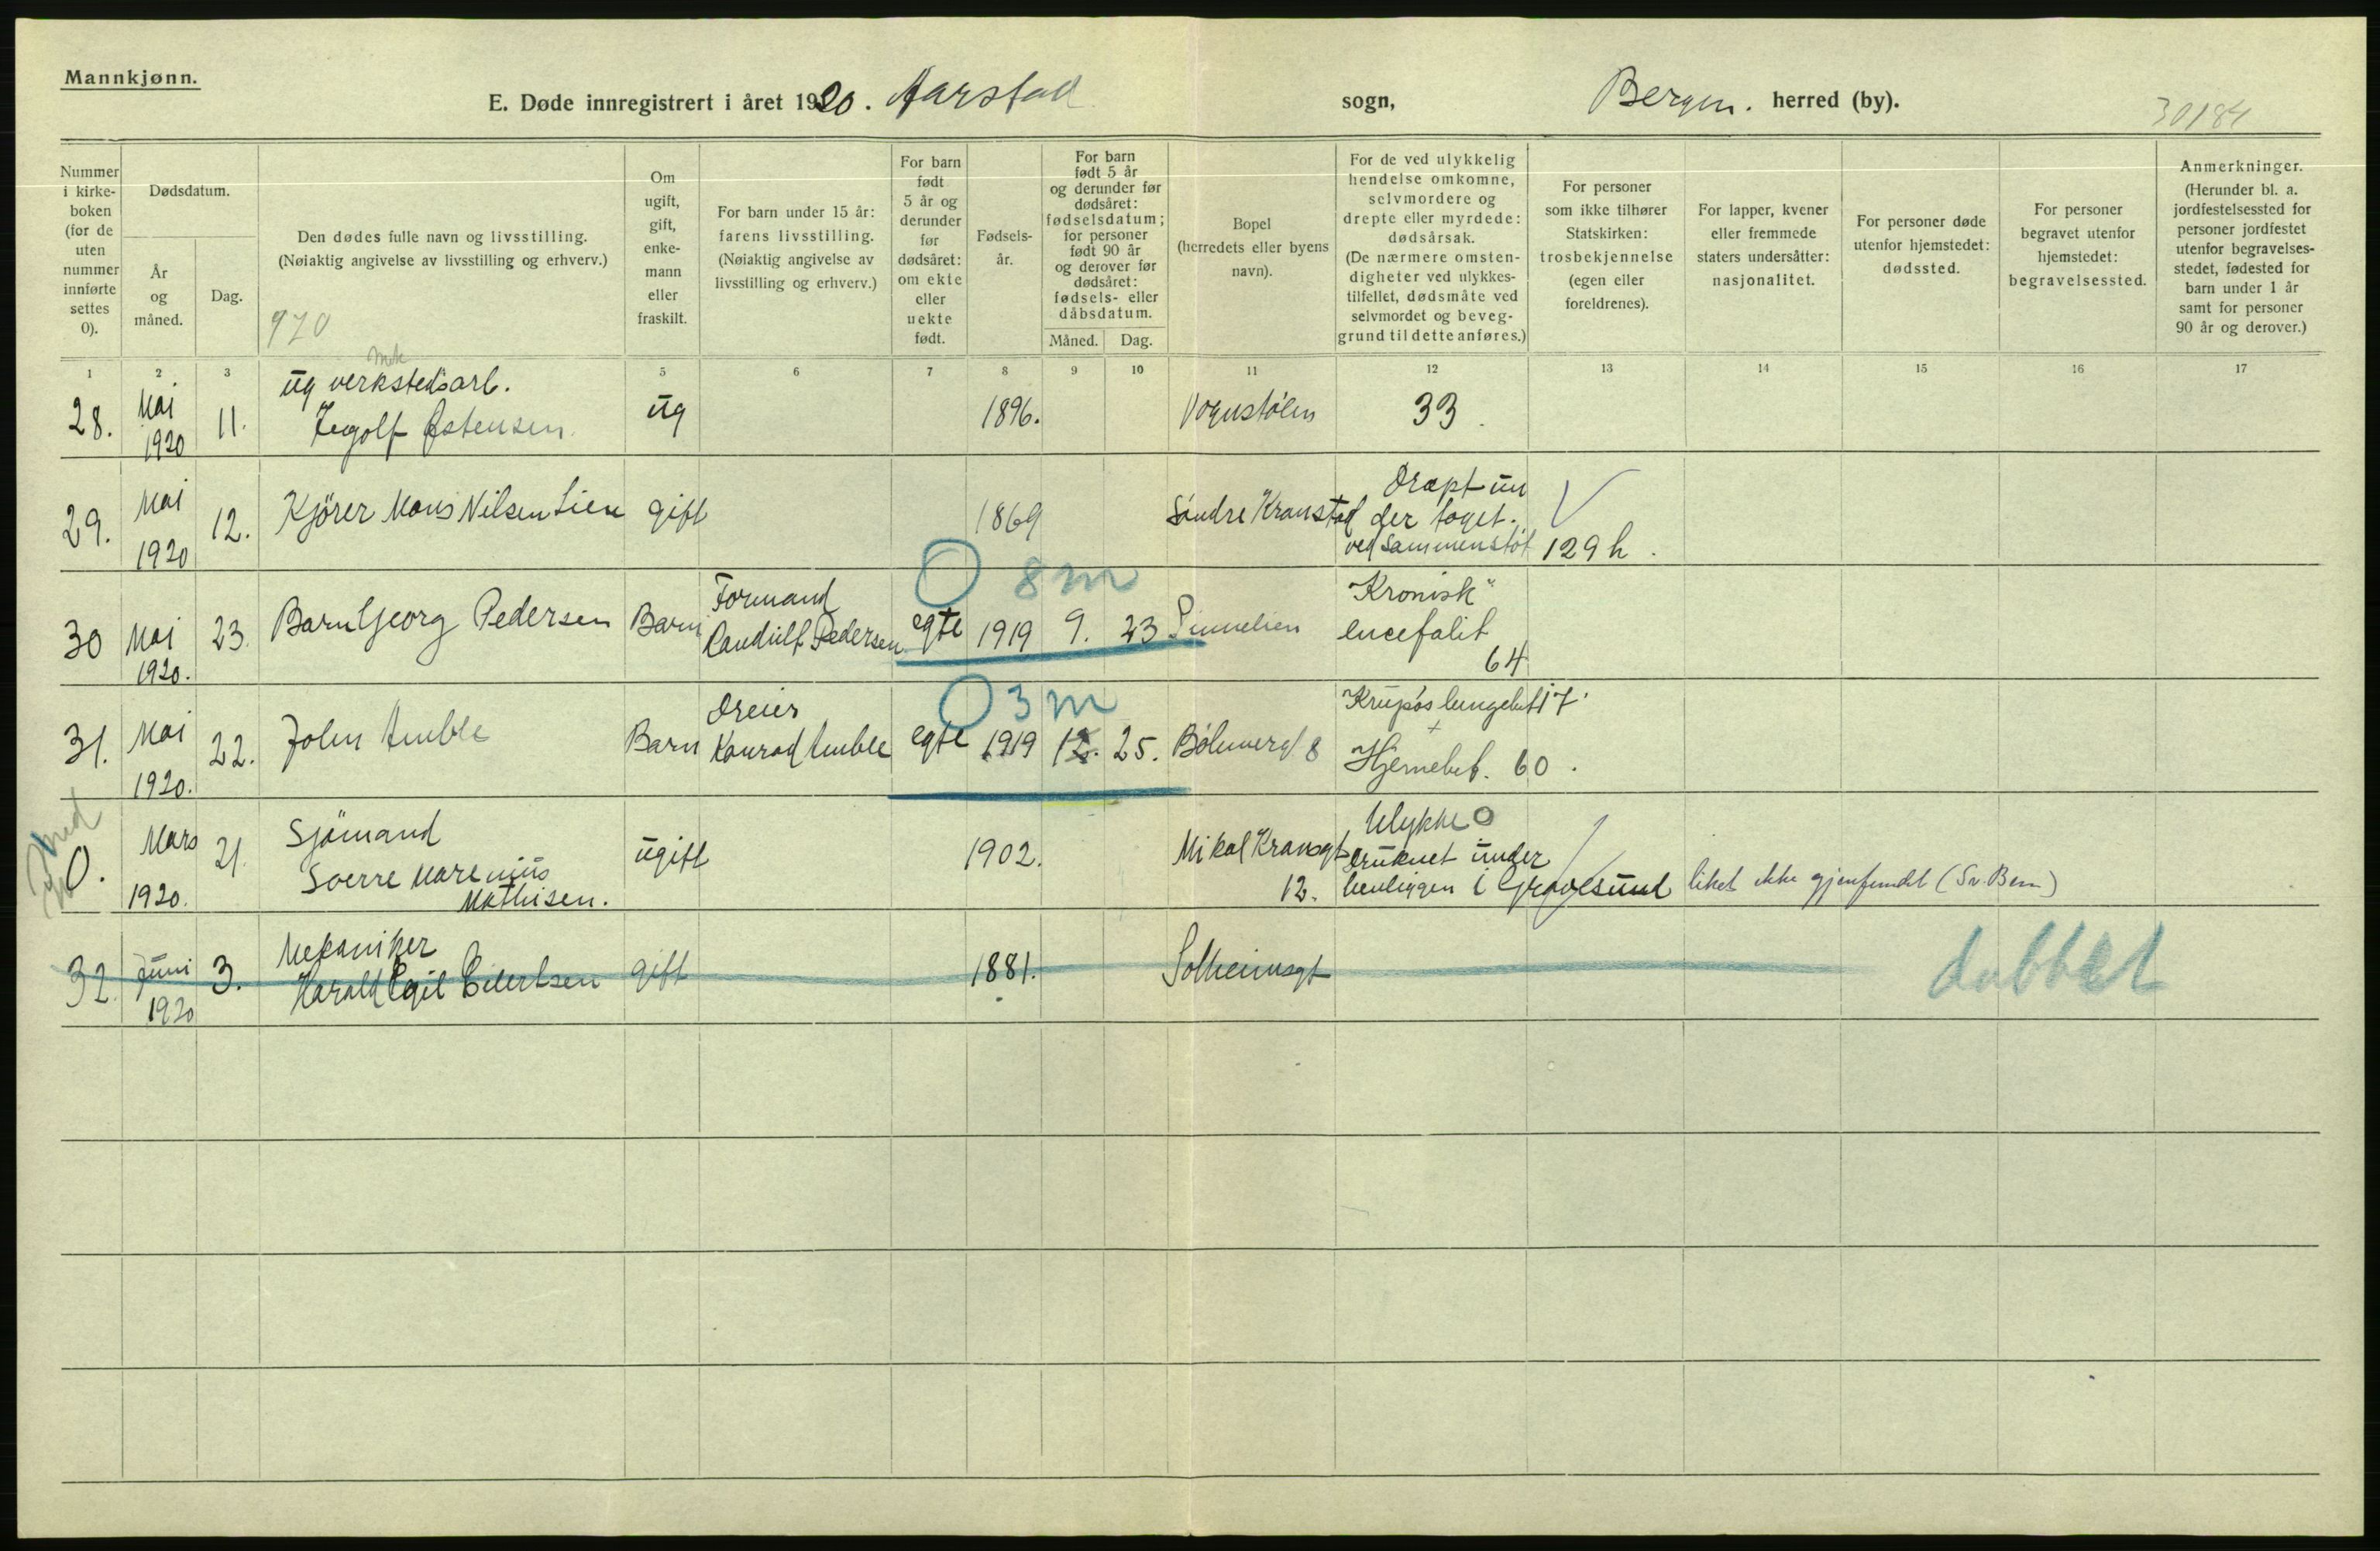 Mannkjønn.
E. Døde innregistrert i året 1920. Aarstad sogn, Bergen. herred (by).
30184
Nummer i kirke-boken (for de uten nummer innførte settes 0).
Dødsdatum.
År og måned.
Dag.
Den dødes fulle navn og livsstilling.
(Nøiaktig angivelse av livsstilling og erhverv.)
920
Om ugift, gift, enke-mann eller fraskilt.
For barn under 15 år: farens livsstilling.
(Nøiaktig angivelse av livsstilling og erhverv.)
For barn født 5 år og derunder før dødsåret: om ekte eller uekte født.
Fødsels-år.
For barn født 5 år og derunder før dødsåret: fødselsdatum; for personer født 90 år og derover før dødsåret: fødsels- eller dåbsdatum.
Måned. Dag.
Bopel
(herredets eller byens navn).
For de ved ulykkelig hendelse omkomne, selvmordere og drepte eller myrdede: dødsårsak.
(De nærmere omsten-digheter ved ulykkes-tilfellet, dødsmåte ved selvmordet og beveg-grund til dette anføres.)
For personer som ikke tilhører Statskirken: trosbekjennelse (egen eller foreldrenes).
For lapper, kvener eller fremmede staters undersåtter: nasjonalitet.
For personer døde utenfor hjemstedet: dødssted.
For personer begravet utenfor hjemstedet: begravelsessted.
Anmerkninger.
(Herunder bl. a. jordfestelsessted for personer jordfestet utenfor begravelses-stedet, fødested for barn under 1 år samt for personer 90 år og derover.)
1 2 3 5 6 7 8 9 10 11 12 13 14 15 16 17
mek
ug verkstedsarb.
28. Mai 1920 11. Østensen ug 1896. 33.
29. Mai 1920 12. Kjører Mons Nilsen Lien gift 1869 Søndre Kronstad Dræpt un
der toget.
ved sammenstøt 129 h.
8 m
30 Mai 1920. 23. Barn Georg Pedersen Barn Formand
Randulf Pedersen egte 1919 9. 23 "Kronisk"
encefalit
64
3 m
31. Mai 1920. 22. John Amble Barn Dreier
Konrad Amble egte 1919 12. 25. 8 Krupøs lungebet 17.
+
Hjernebet. 60.
0. Mars 1920. 21. Sjømand
Sverre Marenius
Mathisen. ugift 1902. Mikal Krausgt
12. Ulykke
druknet under
i Gravesund liket ikke gjenfundet
32. Juni 1920 3. Mekaniker
Harald Egil Eilertsen gift 1881. Solheimsgt dobbel